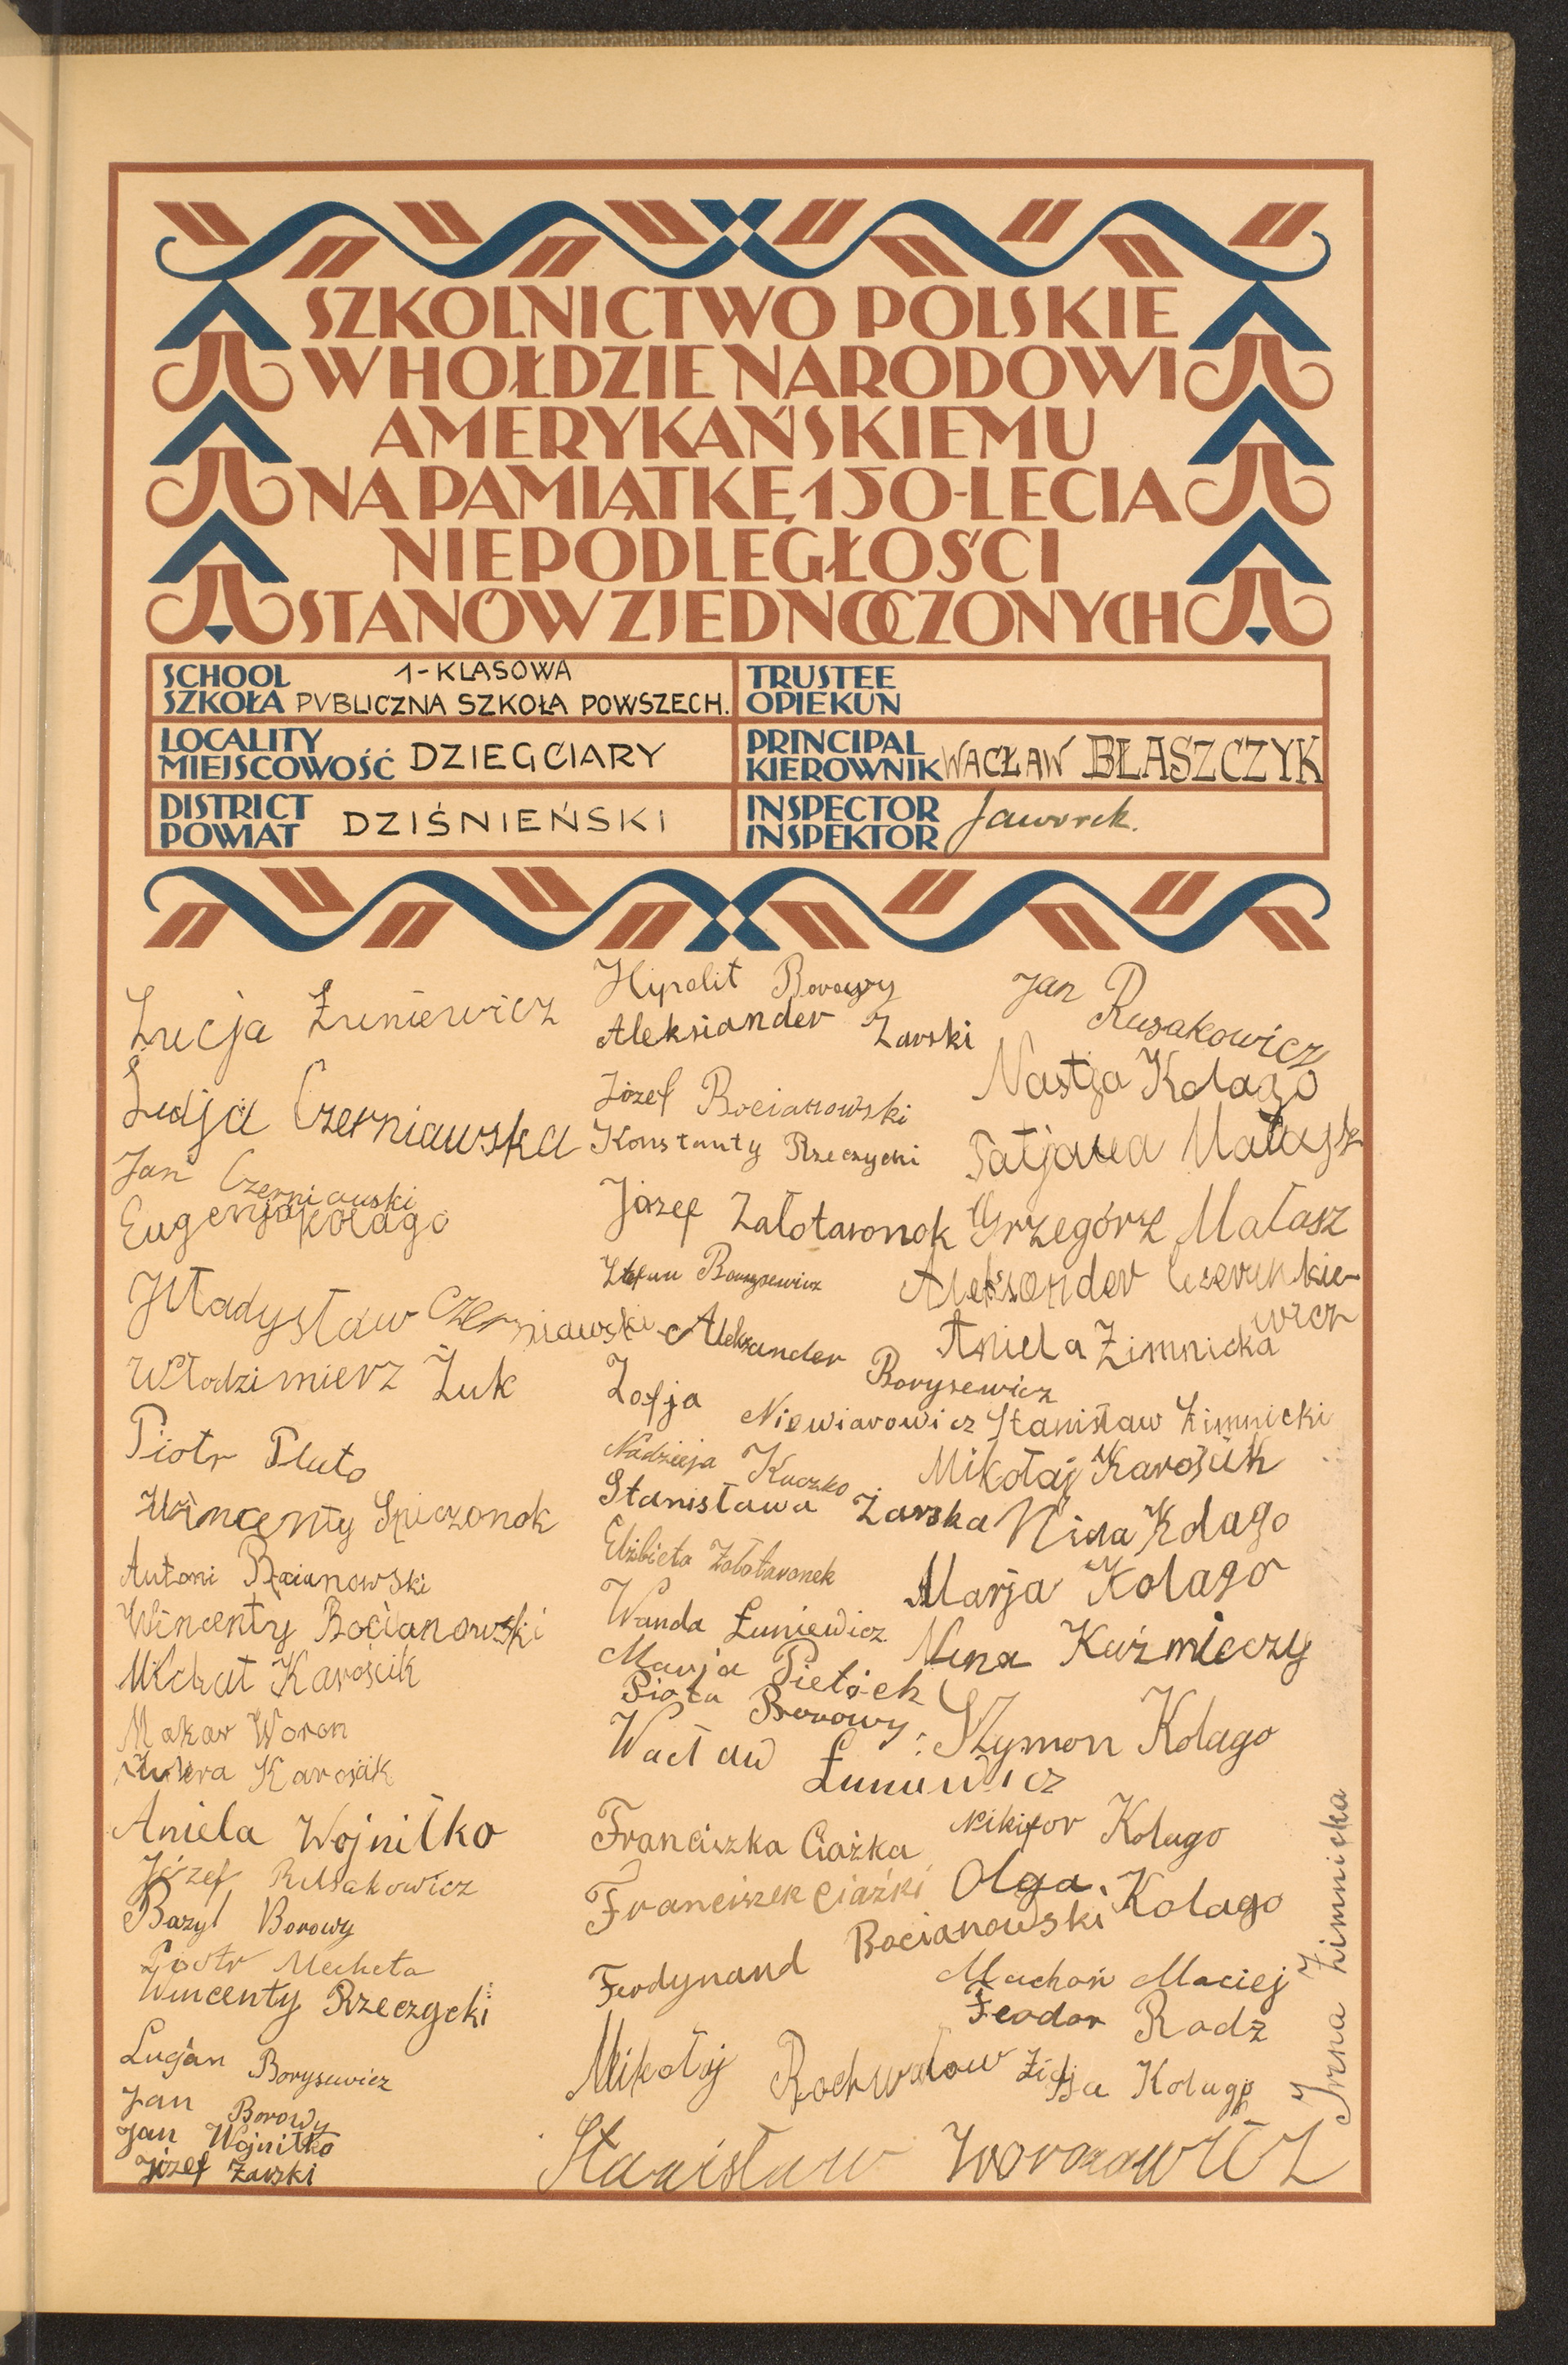 SZKOLNICTWO POLSKIE
W HOŁDZIE NARODOWI
AMERYKAŃSKIEMU
NA PAMIĄTKĘ 150-LECIA
NIEPODLEGŁOŚCI
STANÓW ZJEDNOCZONYCH
SCHOOL
SZKOŁA
1-KLASOWA
PVBLICZNA SZKOŁA POWSZECH.
TRUSTEE
OPIEKUN
LOCALITY
MIEJSCOWOŚĆ
DZIEGCIARY
PRINCIPAL
KIEROWNIK
WACŁAW BŁASZCZYK
DISTRICT
POWIAT
DZIŚNIEŃSKI
INSPECTOR
INSPEKTOR
Jaworek.
Łucja Łuniewicz
Czerniawska
Jan Czerniawski
Eugenja Kołago
Władysław Czerniawski
Włodzimierz Żuk
Piotr Pluto
Wincenty Śpiczonok
Antoni Bocianowski
Wincenty Bocianowski
Michał Karośik
Makar Woron
Karośik
Aniela Wojniłko
Józef Rusakowicz
Bazyl Borowy
Piotr Mecheta
Wincenty Rzeczycki
Lucjan Borysewicz
Jan Borowy
Jan Wojniłko
Józef Żarski
Hipolit Borowy
Aleksiander Żarski
Józef Bocianowski
Konstanty Rzeczycki
Józef Załotaronok
Stefan Borysewicz
Aleksander Borysewicz
Zofja Niewiarowicz
Nadzieja Kuczko
Stanisława Żarska
Elżbieta Zołotaronek
Wanda Łuniewicz
Marja Pietóch
Piotra Borowy
Wacław Łuniewicz
Franciszka Ciażka
Franciszek Ciaźki
Ferdynand Bocianowski
Mikołaj Rochwałow
Stanisław Woronowicz
Jan Rusakowicz
Nastja Kolago
Tatjana Małasz
Grzegórz Małasz
Aleksander Czerenkie-
wicz
Aniela Zimnicka
Stanisław Zimnicki
Mikołaj Karośik
Nina Kolago
Marja Kolago
Nina Kuźmieczy
Szymon Kolago
Nikifor Kolago
Olga Kolago
Machoń Maciej
Feodor Radź
Kolago
Irena Zimnicka